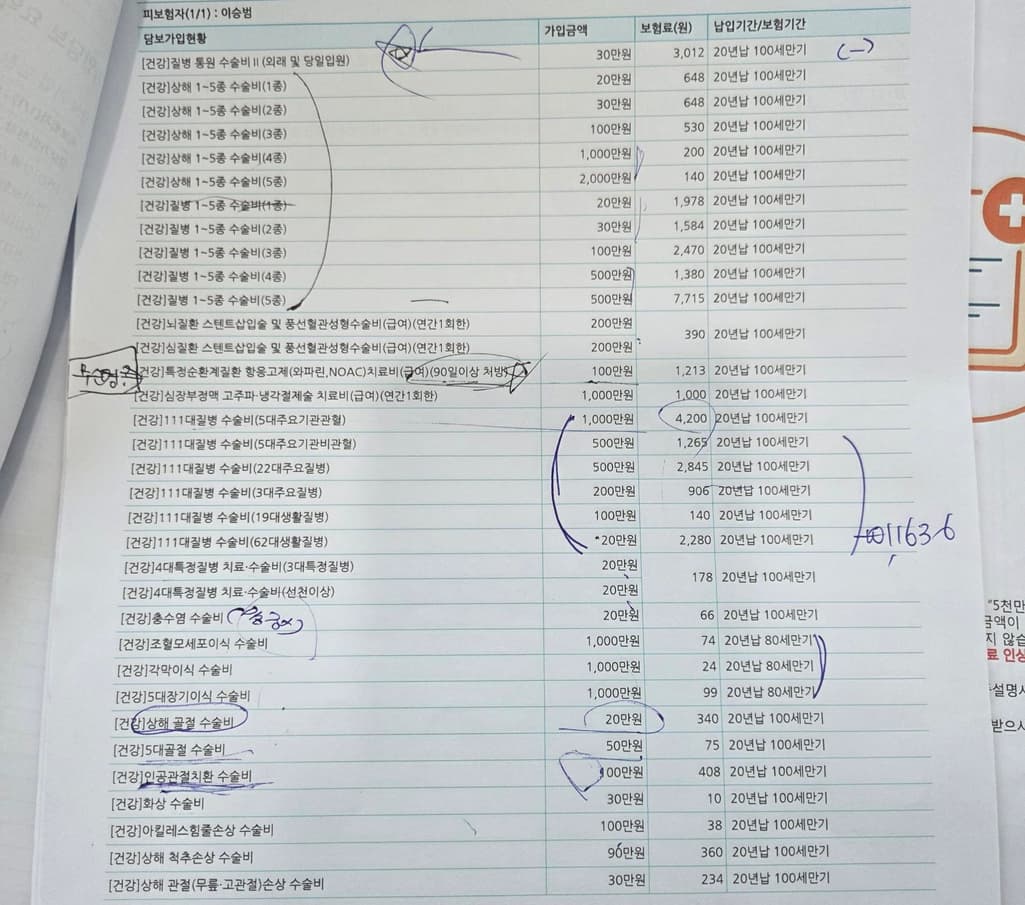 피보험자(1/1) : 이승범
담보가입현황 가입금액 보험료(원) 납입기간/보험기간
[건강]질병 통원 수술비Ⅱ(외래 및 당일입원) 30만원 3,012 20년납 100세만기 (-)
[건강]상해 1~5종 수술비(1종) 20만원 648 20년납 100세만기
[건강]상해 1~5종 수술비(2종) 30만원 648 20년납 100세만기
[건강]상해 1~5종 수술비(3종) 100만원 530 20년납 100세만기
[건강]상해 1~5종 수술비(4종) 1,000만원 200 20년납 100세만기
[건강]상해 1~5종 수술비(5종) 2,000만원 140 20년납 100세만기
[건강]질병 1~5종 수술비(1종) 20만원 1,978 20년납 100세만기
[건강]질병 1~5종 수술비(2종) 30만원 1,584 20년납 100세만기
[건강]질병 1~5종 수술비(3종) 100만원 2,470 20년납 100세만기
[건강]질병 1~5종 수술비(4종) 500만원 1,380 20년납 100세만기
[건강]질병 1~5종 수술비(5종) 500만원 7,715 20년납 100세만기
[건강]뇌질환 스텐트삽입술 및 풍선혈관성형수술비(급여)(연간1회한) 200만원
390 20년납 100세만기
[건강]심질환 스텐트삽입술 및 풍선혈관성형수술비(급여)(연간1회한) 200만원
건강]특정순환계질환 항응고제(와파린,NOAC)치료비(급여)(90일이상 처방) 100만원 1,213 20년납 100세만기
[건강]심장부정맥 고주파·냉각절제술 치료비(급여)(연간1회한) 1,000만원 1,000 20년납 100세만기
[건강]111대질병 수술비(5대주요기관관혈) 1,000만원 4,200 20년납 100세만기
[건강]111대질병 수술비(5대주요기관비관혈) 500만원 1,265 20년납 100세만기
[건강]111대질병 수술비(22대주요질병) 500만원 2,845 20년납 100세만기
[건강]111대질병 수술비(3대주요질병) 200만원 906 20년납 100세만기
[건강]111대질병 수술비(19대생활질병) 100만원 140 20년납 100세만기
[건강]111대질병 수술비(62대생활질병) 20만원 2,280 20년납 100세만기
11636
[건강]4대특정질병 치료·수술비(3대특정질병) 20만원
178 20년납 100세만기
[건강]4대특정질병 치료·수술비(선천이상) 20만원
[건강]충수염 수술비 20만원 66 20년납 100세만기
[건강]조혈모세포이식 수술비 1,000만원 74 20년납 80세만기
[건강]각막이식 수술비 1,000만원 24 20년납 80세만기
[건강]5대장기이식 수술비 1,000만원 99 20년납 80세만기
[건강]상해 골절 수술비 20만원 340 20년납 100세만기
[건강]5대골절 수술비 50만원 75 20년납 100세만기
[건강]인공관절치환 수술비 100만원 408 20년납 100세만기
[건강]화상 수술비 30만원 10 20년납 100세만기
[건강]아킬레스힘줄손상 수술비 100만원 38 20년납 100세만기
[건강]상해 척추손상 수술비 90만원 360 20년납 100세만기
[건강]상해 관절(무릎·고관절)손상 수술비 30만원 234 20년납 100세만기
"5천만
금액이
지 않습
료 인상
설명사
받으시